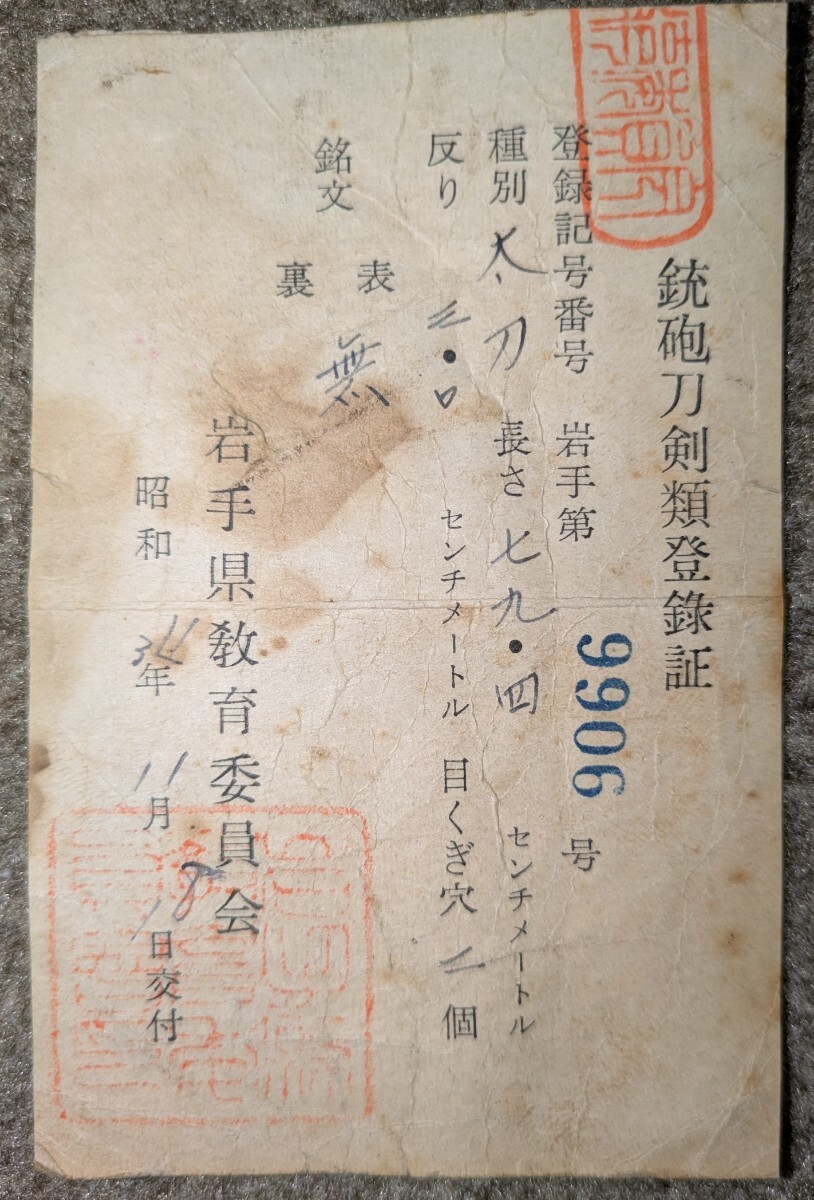 銃砲刀剣類登録証
登録記号番号 岩手第 9906 号
種別 太刀 長さ 七九・四 センチメートル
反り 三・〇 センチメートル 目くぎ穴 二 個
銘文 表 無
裏
岩手県教育委員会
昭和 年 11月 18日交付